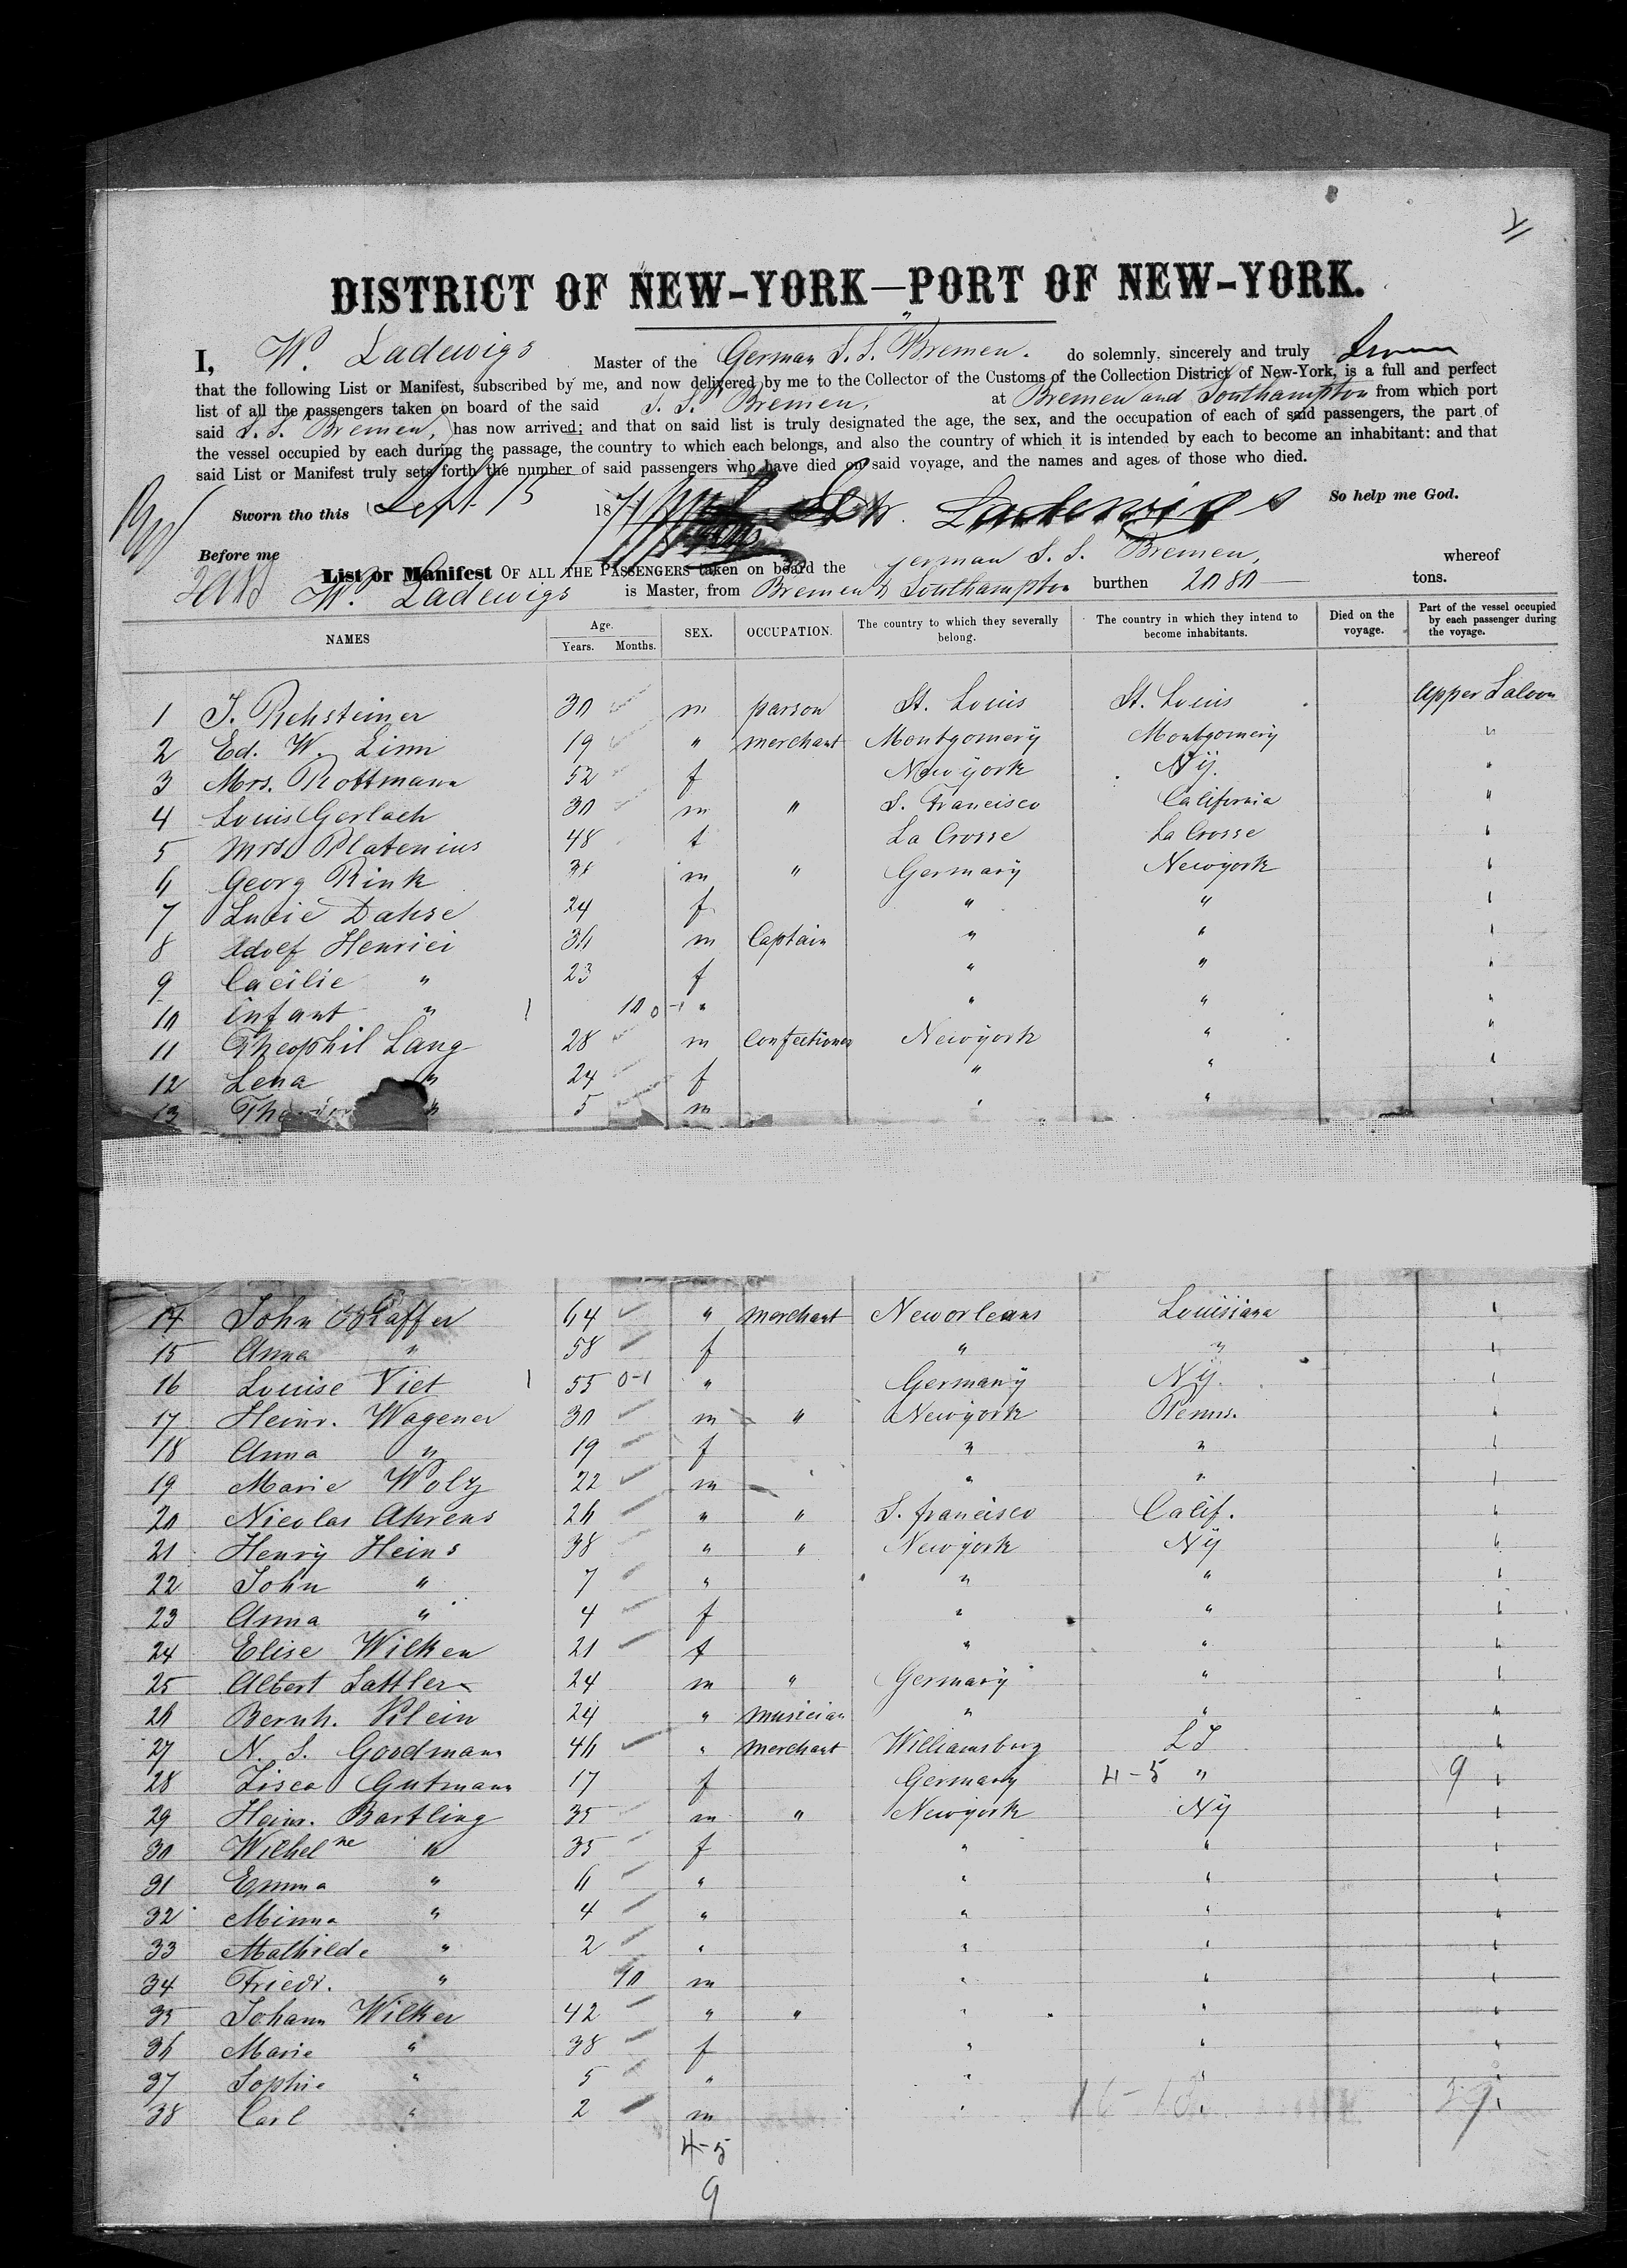 DISTRICT OF NEW-YORK—PORT OF NEW-YORK.
I, W. Ladewigs Master of the German S. S. Bremen. do solemnly, sincerely and truly swear
that the following List or Manifest, subscribed by me, and now delivered by me to the Collector of the Customs of the Collection District of New-York, is a full and perfect
list of all the passengers taken on board of the said S. S. Bremen, at Bremen and Southampton from which port
said S. S. Bremen, has now arrived; and that on said list is truly designated the age, the sex, and the occupation of each of said passengers, the part of
the vessel occupied by each during the passage, the country to which each belongs, and also the country of which it is intended by each to become an inhabitant: and that
said List or Manifest truly sets forth the number of said passengers who have died on said voyage, and the names and ages of those who died.
So help me God.
Sworn tho this Sept 15 1871 W. Ladewigs
Before me
List or Manifest OF ALL THE PASSENGERS taken on board the german S. S. Bremen, whereof
W. Ladewigs is Master, from Bremen & Southampton burthen 2080 — tons.
NAMES Age. Years. Months. SEX. OCCUPATION. The country to which they severally belong. The country in which they intend to become inhabitants. Died on the voyage. Part of the vessel occupied by each passenger during the voyage.
1 J. Rehsteiner 30 m parson St. Louis St. Louis Upper Saloon
2 Ed. W. Linn 19 " merchant Montgomery Montgomery "
3 Mrs. Rottmann 52 f Newyork Ny. "
4 Louis Gerlach 30 m " S. Francisco California "
5 Mrs. Platenius 48 f La Crosse La Crosse "
6 Georg Rink m " Germany Newyork "
7 Lucie Dahse 24 f " " "
8 Adolf Henrici 36 m Captain " " "
9 Cacilie " 23 f " " "
10 infant " 10 0-1 " " " "
11 Theophil Lang 28 m Confectioner Newyork " "
12 Lena " 24 f " " "
13 " 5 m " " "
14 John 64 " merchant Neworleans Louisiana "
15 Anna " 58 f " " "
16 Louise Viet 55 0-1 " Germany Ny. "
17 Heinr. Wagener 30 m " Newyork Penns. "
18 Anna " 19 f " " "
19 Marie Wolz 22 m " " "
20 Nicolas Ahrens 26 " " S. francisco Calif. "
21 Henry Heins 38 " " Newyork Ny "
22 John " 7 " " " "
23 Anna " 4 f " " "
24 Elise Wilken 21 f " " "
25 Albert Sattler 24 m " Germany " "
26 Bernh. Klein 24 " musician " " "
27 N. S. Goodmann 46 " merchant Williamsburg LI "
28 Zisca Gutmann 17 f Germany 4-5 " 9 "
29 Heinr. Bartling 35 m " Newyork Ny "
30 Wilhelne " 35 f " " "
31 Emma " 6 " " " "
32 Minna " 4 " " " "
33 Mathilde " 2 " " " "
34 Friedr. " 10 m " " "
35 Johann Wilker 42 " " " " "
36 Marie " 38 f " " "
37 Sophie " 5 " " " "
38 Carl " 2 m " " "
4-5
9